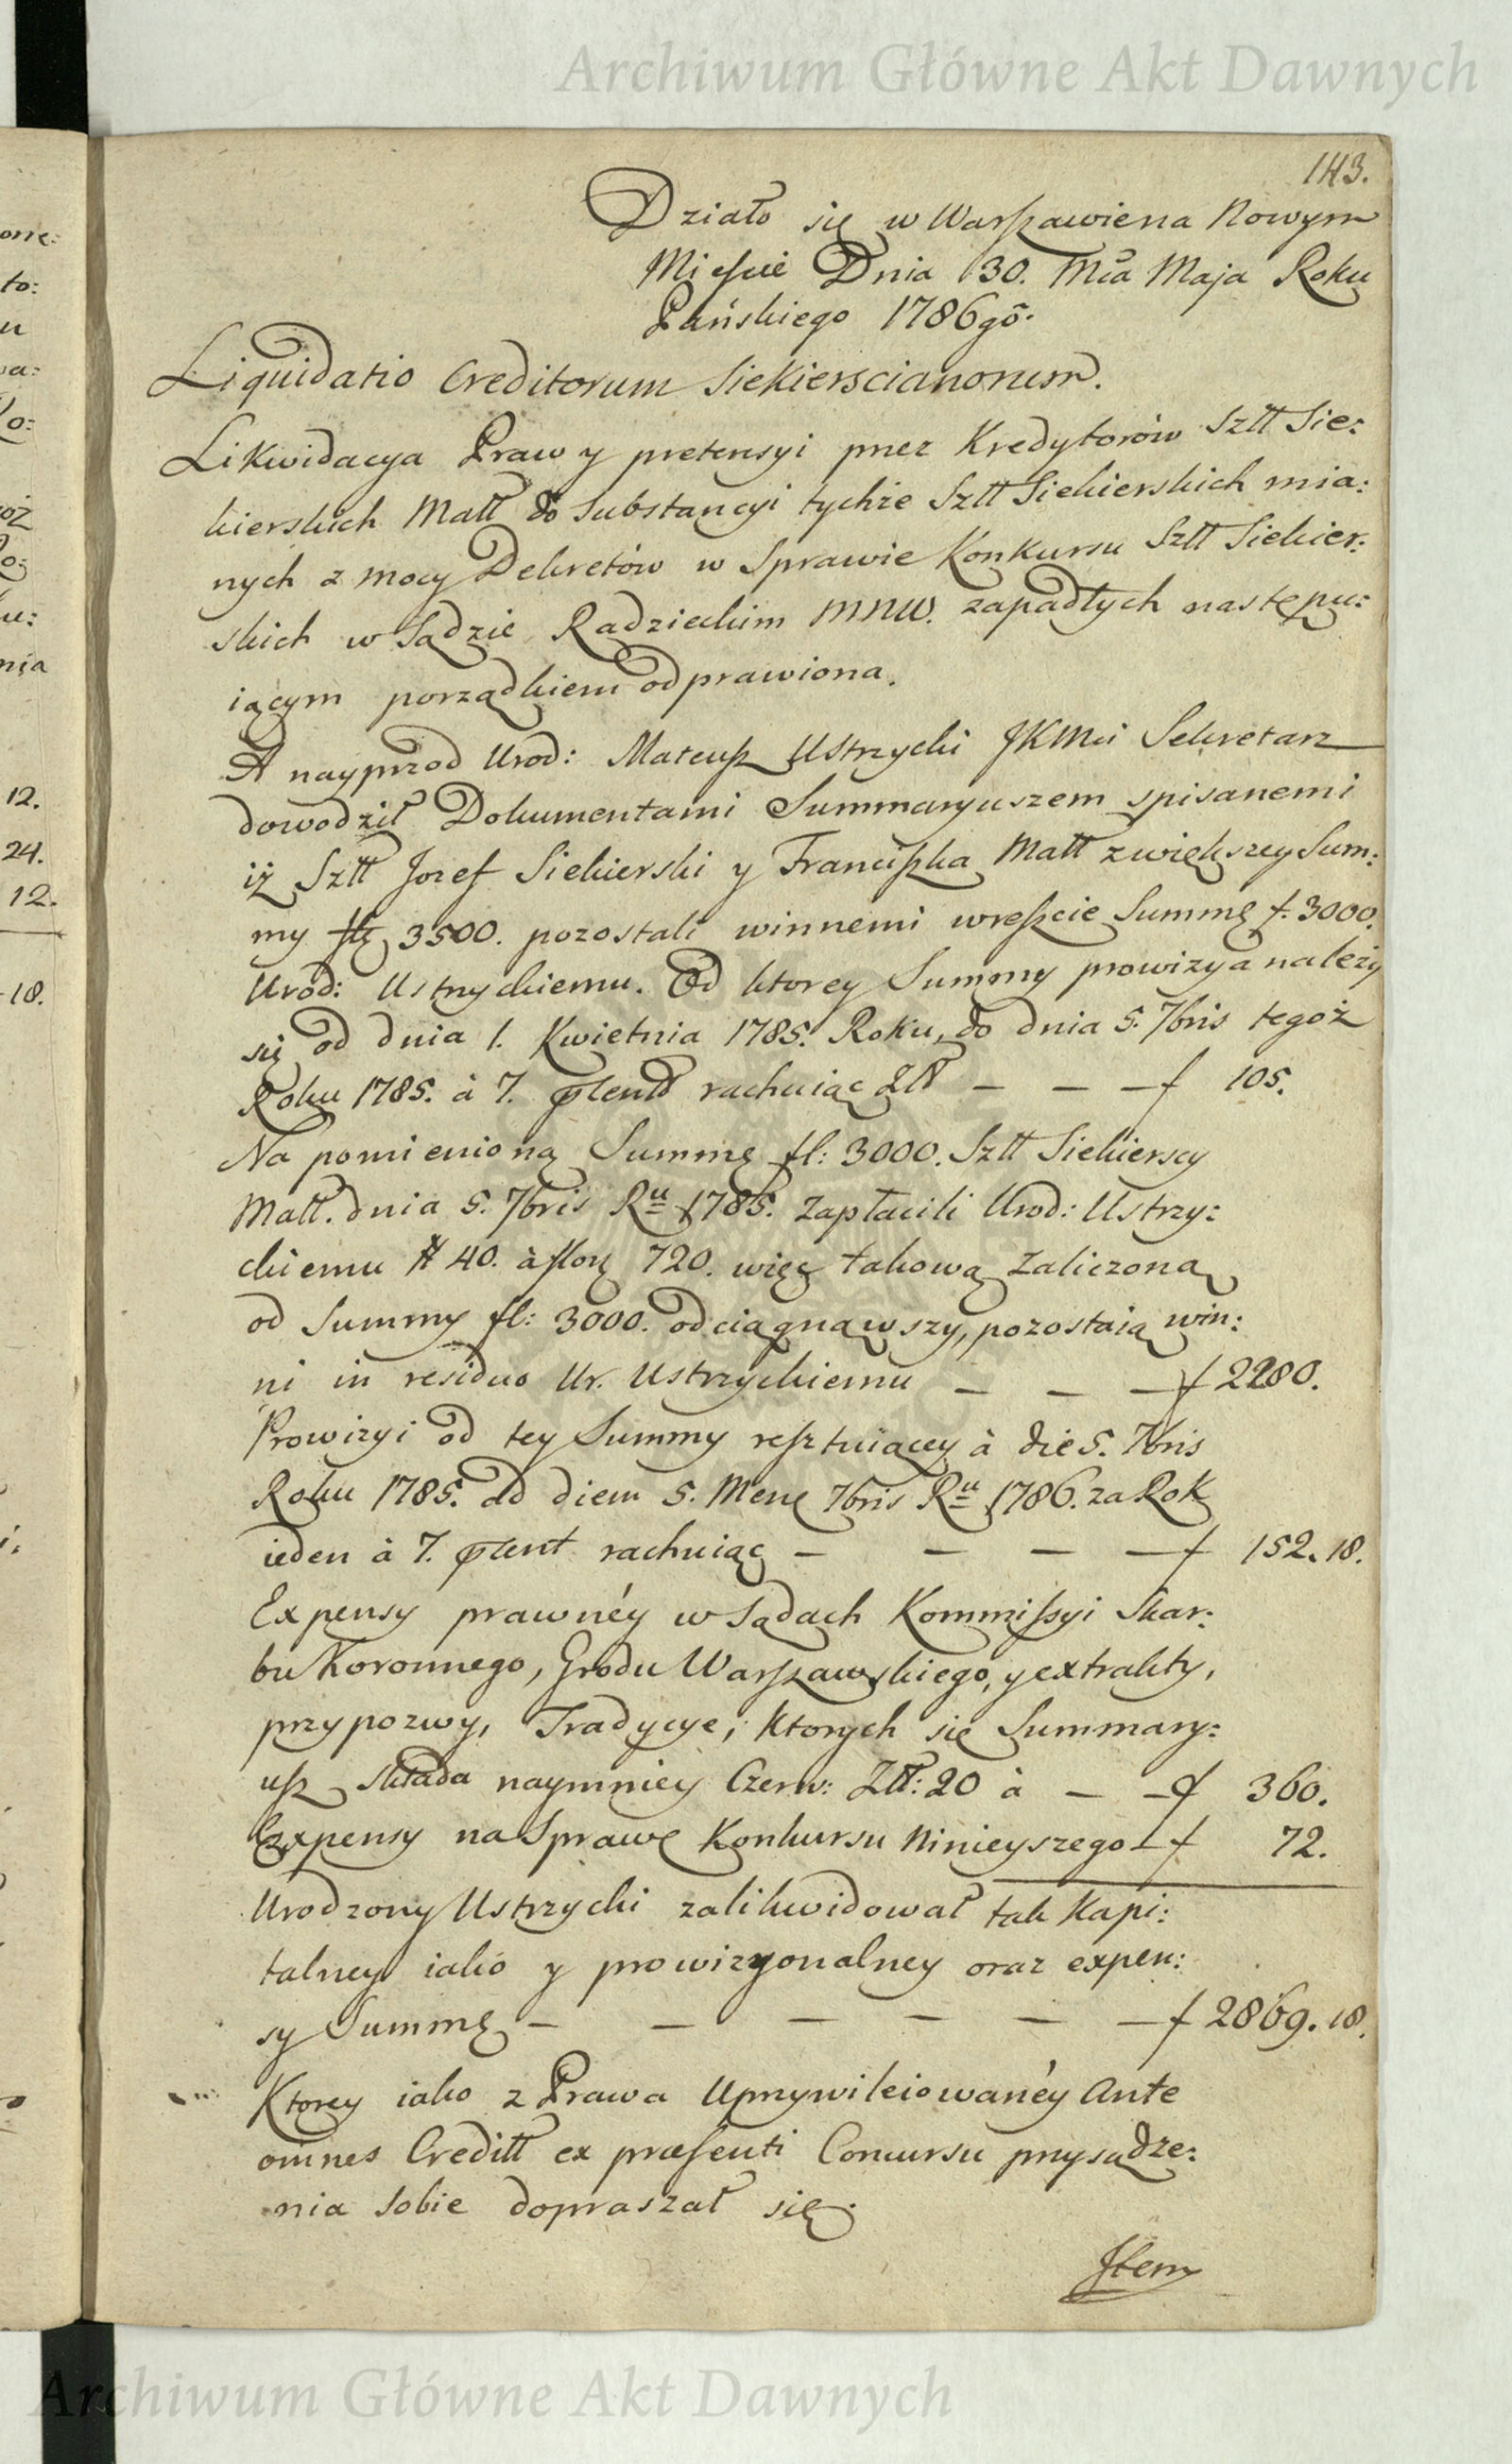 Archiwum Główne Akt Dawnych
143.
Działo się w Warszawie na Nowym
Mieście Dnia 30. Mca Maja Roku
Pańskiego 1786go.
Liquidatio Creditorum Siekierscianorum.
Likwidacya Praw y pretensyi przez Kredytorów Sztt Sie:
kierskich Matt do Substancyi tychże Sztt Siekierskich mia:
nych z mocy Dekretów w Sprawie Konkursu Sztt Siekier:
skich w Sądzie Radzieckim MNW. zapadłych nastepu:
iącym porządkiem odprawiona.
A nayprzod Urod: Mateusz Ustrzycki JKMci Sekretarz
dowodził Dokumentami Summaryuszem spisanemi
iż Sztt Jozef Siekierski y Franciszka Matt zwiększey Sum:
my 3500. pozostali winnemi wreszcie Summę f. 3000.
Urod: Ustrzyckiemu. Od ktorey Summy prowizya należy
się od dnia 1. Kwietnia 1785. Roku, do dnia 5. 7bris tegoż
Roku 1785. à 7. rachuiąc Złł — — — f 105.
Na pomienioną Summę fl: 3000. Sztt Siekierscy
Matt. dnia 5. 7bris Ru 1785. Zapłacili Urod: Ustrzy:
ckiemu # 40. à flor 720. więc takową Zaliczoną
od Summy fl: 3000. odciągnąwszy, pozostaią win:
ni in residuo Ur. Ustrzyckiemu — — — f 2280.
Prowizyi od tey Summy resztuiącey à die 5. 7bris
Roku 1785. ad diem 5. Mens 7bris Ru 1786. za Rok
ieden à 7. rachuiąc — — — — f 152. 18.
Expensy prawnéy w Sądach Kommissyi Skar:
bu Koronnego, Grodu Warszawskiego, y extrakty,
przypozwy, Tradycye, ktorych się Summary:
usz składa naymniey Czerw: Złł: 20 à — — f 360.
Expensy na Sprawę Konkursu Ninieyszego — f 72.
Urodzony Ustrzycki zalikwidował tak Kapi:
talney iako y prowizyonalney oraz expen:
sy Summę — — — — — — f 2869. 18.
Ktorey iako z Prawa Uprzywileiowanéy Ante
omnes Creditt ex præsenti Concursu przysądze:
nia sobie dopraszał się.
Item
Archiwum Główne Akt Dawnych